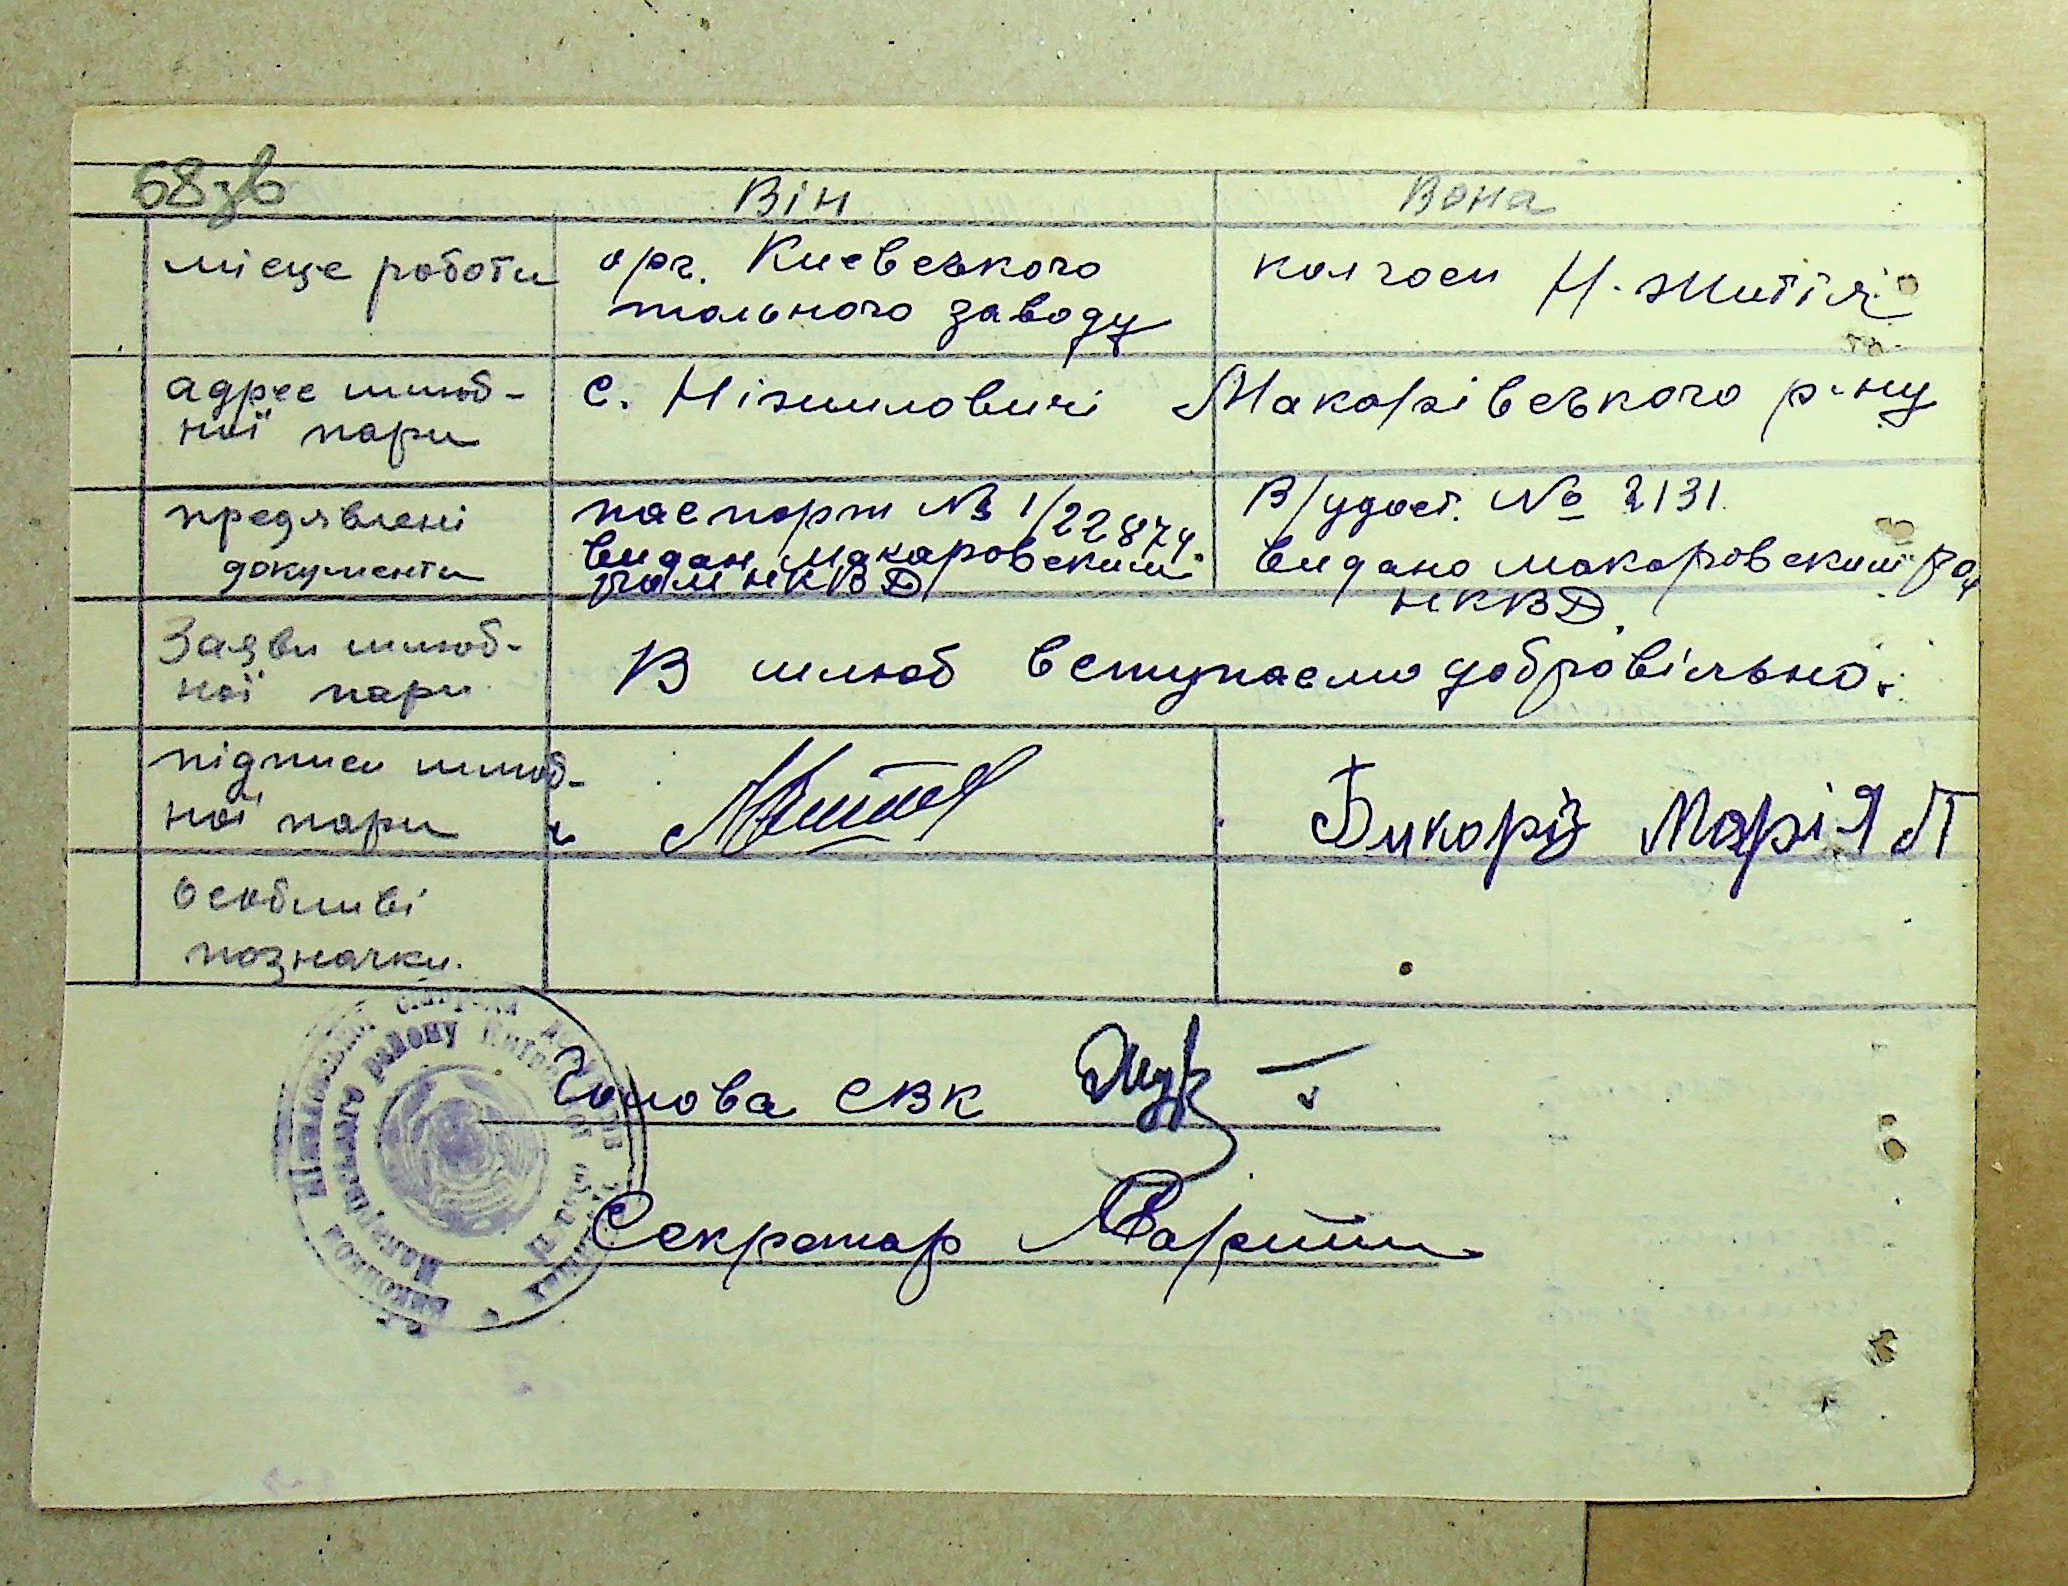 68зв
Він
Вона
місце роботи
орг. Киевського
тольного заводу
колгосп Н. Життя
адрес шлюб-
ної пари
с. Ніжиловичі Макарівського р-ну
предявлені
документи
паспорт № 1/22874
видан Макаровским
рай НКВД
В/удост. № 2131.
видано Макаровским
НКВД.
Заяви шлюб-
ної пари
В шлюб вступаємо добровільно.
підписи шлюб-
ної пари
Бикоріз Марія П
особливі
позначки.
Голова СВК
Секретар